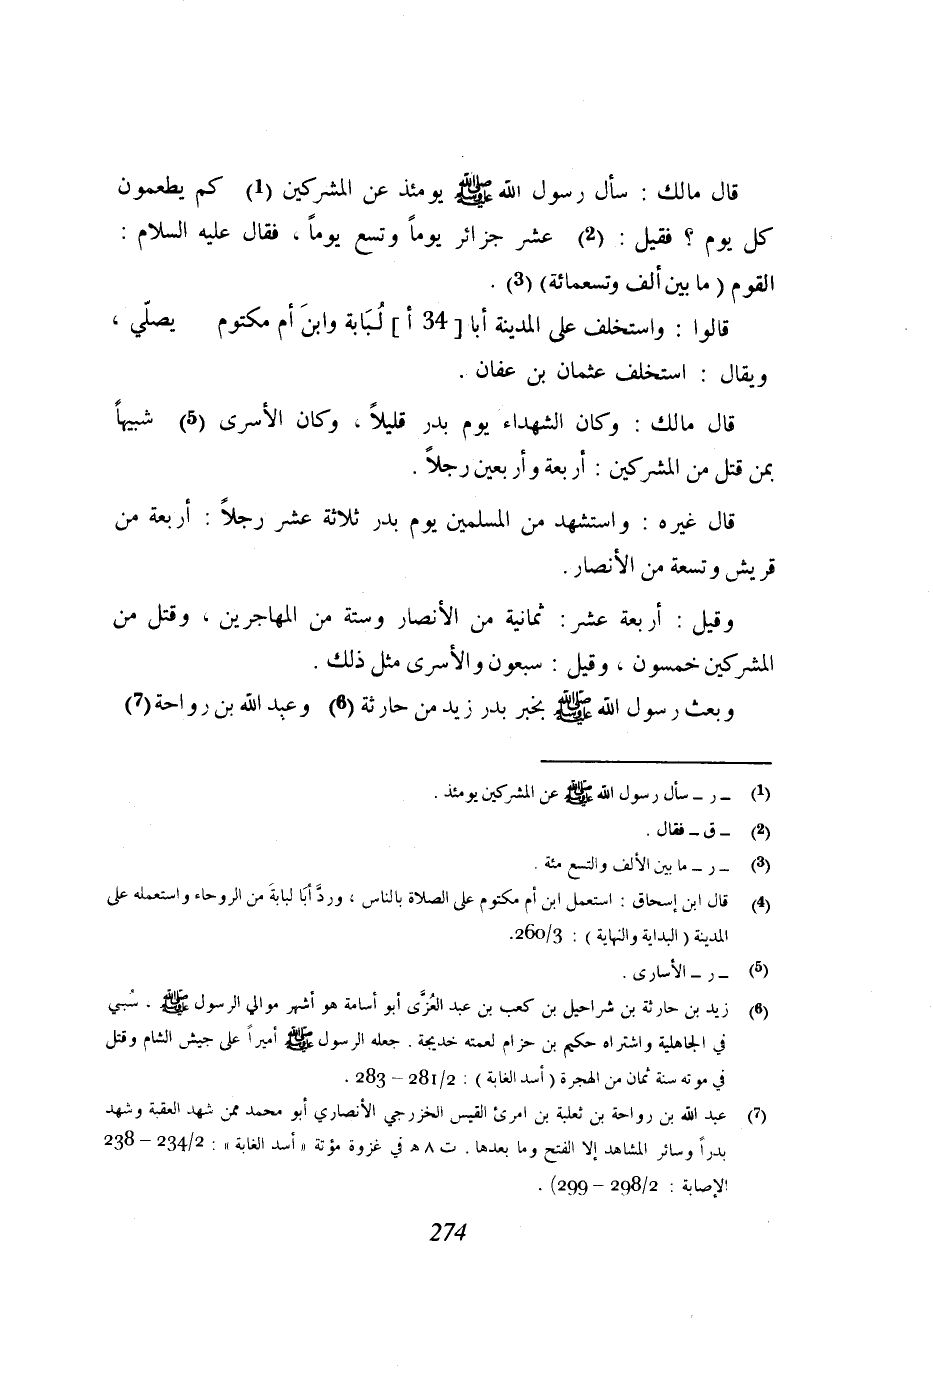 قال مالك : سأل رسول الله ﷺ يومئذ عن المشركين (1) كم يطعمون
كل يوم ؟ فقيل : (2) عشر جزائر يوماً وتسع يوماً ، فقال عليه السلام :
القوم ( ما بين ألف وتسعمائة) (3) .
قالوا : واستخلف على المدينة أبا [ 34 أ ] لُبَابة وابنَ أم مكتوم يصلّي ،
ويقال : استخلف عثمان بن عفان .
قال مالك : وكان الشهداء يوم بدر قليلاً ، وكان الأسرى (5) شبيهاً
بمن قتل من المشركين : أربعة وأربعين رجلاً .
قال غيره : واستشهد من المسلمين يوم بدر ثلاثة عشر رجلاً : أربعة من
قريش وتسعة من الأنصار .
وقيل : أربعة عشر : ثمانية من الأنصار وستة من المهاجرين ، وقتل من
المشركين خمسون ، وقيل : سبعون والأسرى مثل ذلك .
وبعث رسول الله ﷺ بخبر بدر زيد من حارثة (6) وعبد الله بن رواحة (7)
(1) ـ ر ـ سأل رسول الله ﷺ عن المشركين يومئذ .
(2) ـ ق ـ فقال .
(3) ـ ر ـ ما بين الألف والتسع مئة .
(4) قال ابن إسحاق : استعمل ابن أم مكتوم على الصلاة بالناس ، وردَّ أبَا لبابةَ من الروحاء واستعمله على
المدينة ( البداية والنهاية ) : 260/3.
(5) ـ ر ـ الأسارى .
(6) زيد بن حارثة بن شراحيل بن كعب بن عبد العُزَّى أبو أسامة هو أشهر موالي الرسول ﷺ . سُبي
في الجاهلية واشتراه حكيم بن حزام لعمته خديجة . جعله الرسول ﷺ أميراً على جيش الشام وقتل
في موته سنة ثمان من الهجرة ( أسد الغابة ) : 281/2 – 283 .
(7) عبد الله بن رواحة بن ثعلبة بن امرئ القيس الخزرجي الأنصاري أبو محمد ممن شهد العقبة وشهد
بدراً وسائر المشاهد إلا الفتح وما بعدها . ت ٨ هـ في غزوة مؤتة « أسد الغابة » : 234/2 – 238
الإصابة : 298/2 – 299) .
274